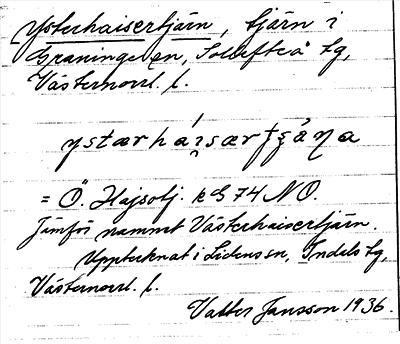 Ysterhaisertjärn, tjärn i
Graninge sn, Sollefteå tg,
Västernorrl. l.
ystærhái̯særʈʂǻn̥a
= Ö. Hajsotj. kb 74 NO.
Jämför namnet Västerhaisertjärn.
Upptecknat i Lidens sn, Indals tg,
Västernorrl. l.
Valter Jansson 1936.